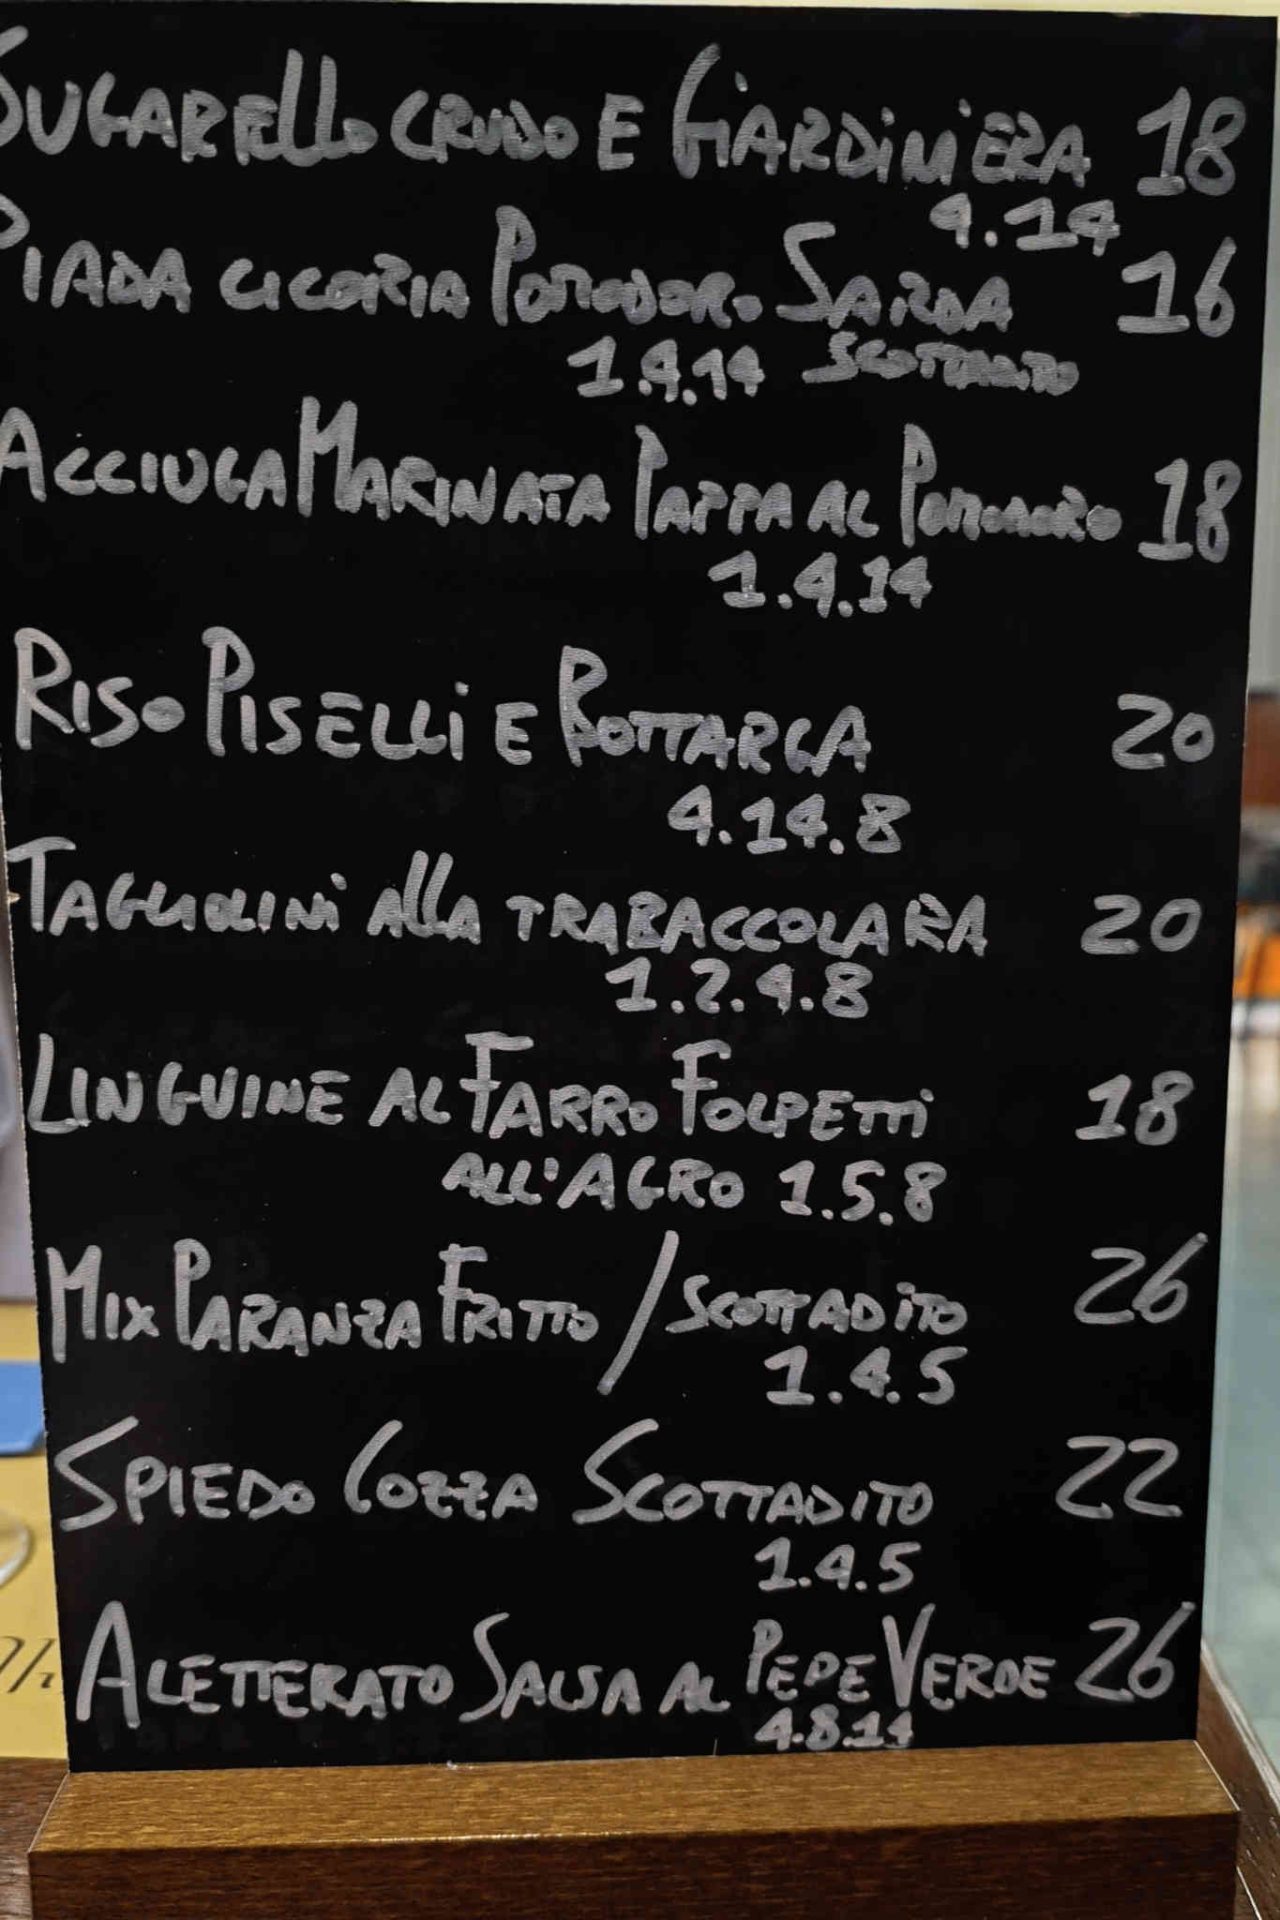 SUGARELLO CRUDO E GIARDINIERA 18
4.14
PIADA CICORIA POMODORO SARDA 16
1.4.14 SCOTTADITO
ACCIUGA MARINATA PAPPA AL POMODORO 18
1.4.14
RISO PISELLI E BOTTARGA 20
4.14.8
TAGLIOLINI ALLA TRABACCOLARA 20
1.2.4.8
LINGUINE AL FARRO FOLPETTI 18
ALL'AGRO 1.5.8
MIX PARANZA FRITTO / SCOTTADITO 26
1.4.5
SPIEDO COZZA SCOTTADITO 22
1.4.5
ALETTERATO SALSA AL PEPE VERDE 26
4.8.14